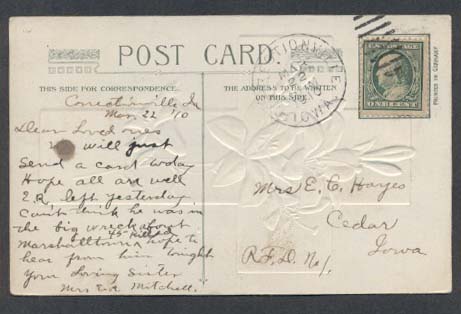 POST CARD.
THIS SIDE FOR CORRESPONDENCE.
THE ADDRESS TO BE WRITTEN
ON THIS SIDE
PRINTED IN GERMANY
IOWA
ONE CENT
Correctionville Ia
Mar. 22 '10
Dear Loved ones
will just
Send a card today
Hope all are well
left yesterday
Can't think he was in
the big wreck about
45 killed
Marshalltown hope to
hear from him tonight
Your loving Sister
Mrs Mitchell.
Mrs E. C. Hayes
Cedar
Iowa
R.F.D. No 1